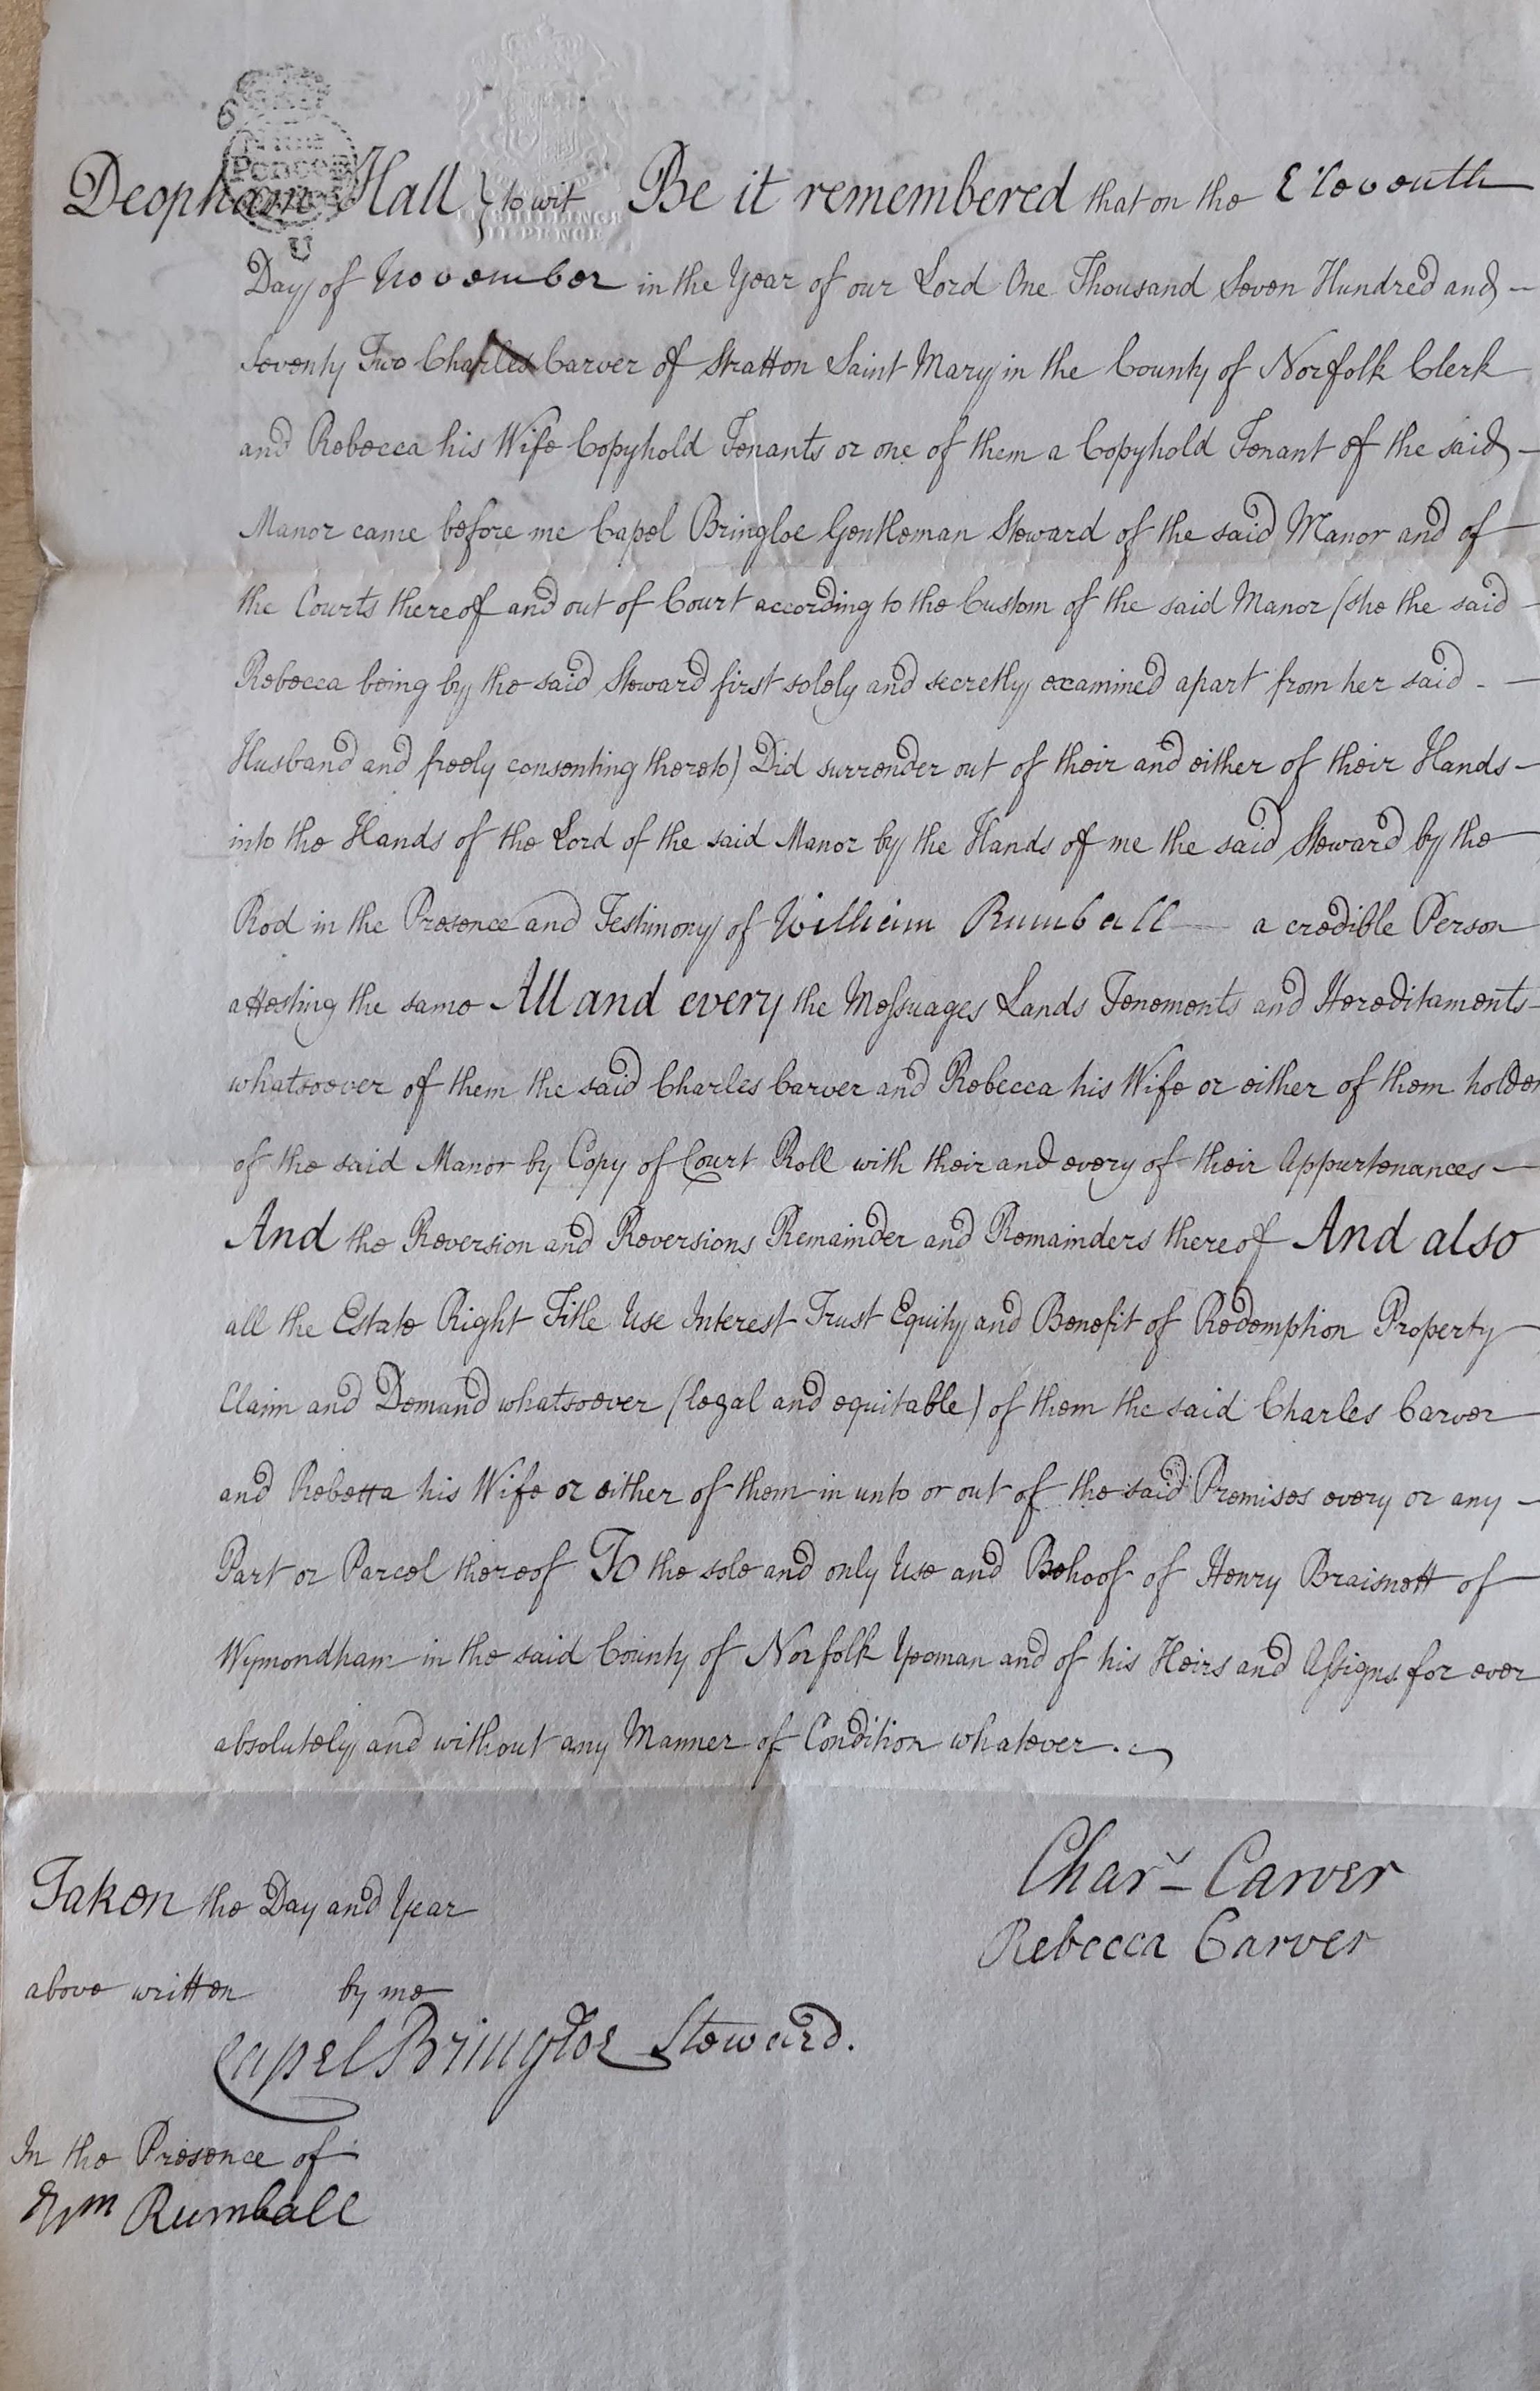 NINE
PENCE
II SHILLINGS
VI PENCE
Deopham Hall } to wit Be it remembered that on the Eleventh
Day of November in the Year of our Lord One Thousand Seven Hundred and
Seventy Two Charles Carver of Stratton Saint Mary in the County of Norfolk Clerk
and Rebecca his Wife Copyhold Tenants or one of them a Copyhold Tenant of the said
Manor came before me Capel Bringloe Gentleman Steward of the said Manor and of
the Courts thereof and out of Court according to the Custom of the said Manor (she the said
Rebecca being by the said Steward first solely and secretly examined apart from her said
Husband and freely consenting thereto) Did surrender out of their and either of their Hands
into the Hands of the Lord of the said Manor by the Hands of me the said Steward by the
Rod in the Presence and Testimony of William Rumball a credible Person
attesting the same All and every the Messuages Lands Tenements and Hereditaments
whatsoever of them the said Charles Carver and Rebecca his Wife or either of them holden
of the said Manor by Copy of Court Roll with their and every of their Appurtenances
And the Reversion and Reversions Remainder and Remainders thereof And also
all the Estate Right Title Use Interest Trust Equity and Benefit of Redemption Property
Claim and Demand whatsoever (legal and equitable) of them the said Charles Carver
and Rebecca his Wife or either of them in unto or out of the said Premises every or any
Part or Parcel thereof To the sole and only Use and Behoof of Henry Braisnett of
Wymondham in the said County of Norfolk Yeoman and of his Heirs and Assigns for ever
absolutely and without any Manner of Condition whatever.
Chars Carver
Rebecca Carver
Taken the Day and Year
above written by me
Capel Bringloe Steward.
In the Presence of
Wm Rumball